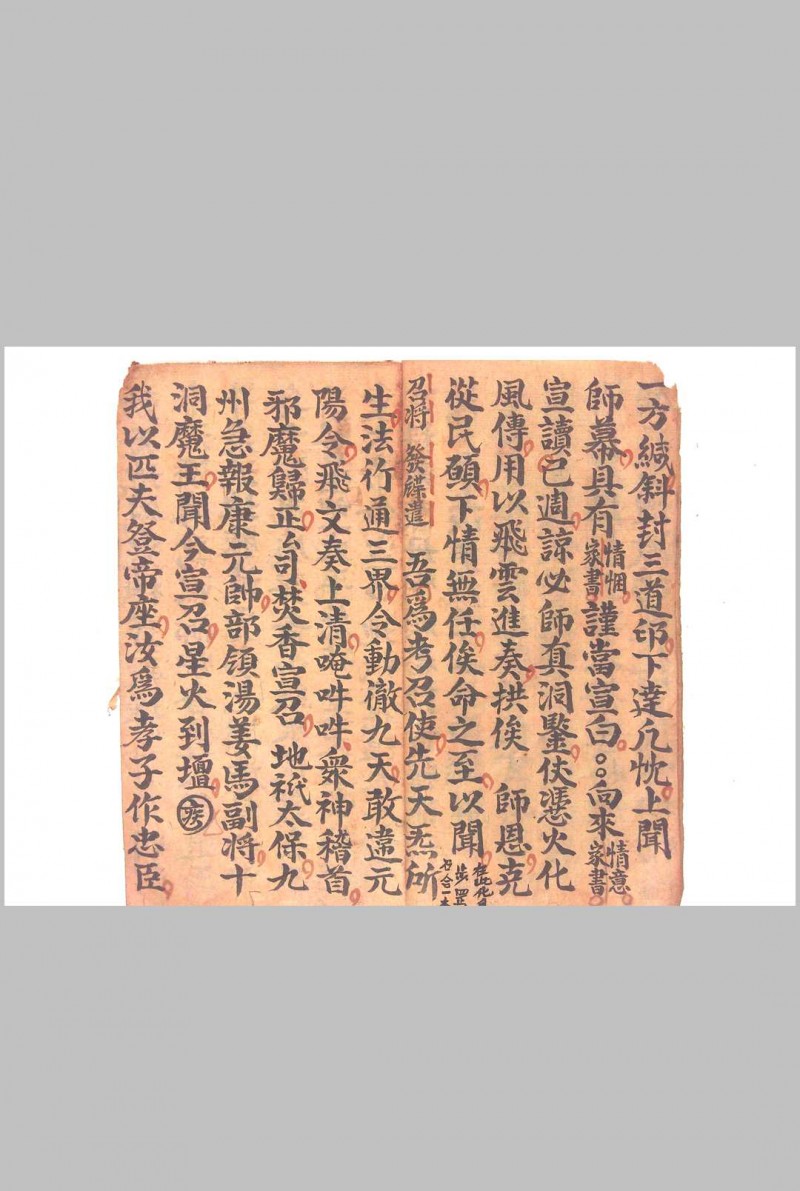 一方緘斜封三道印下達凡忱上聞
師幕具有情悃家書謹當宣白向來情意家書
宣讀已週諒必師真洞鑒伏憑火化
風傳用以飛雲進奏拱俟 師恩克
從民願下情無任俟命之至以聞
召将 發牒遣 吾爲考召使先天炁所
生法行通三界令動徹九天敢違元
陽令飛文奏上清唵吽吽衆神稽首
邪魔歸正台司焚香宣召 地祇太保九
州急報康元帥部領湯姜馬副将十
洞魔王聞今宣召星火到壇
我以匹夫登帝座汝爲孝子作忠臣